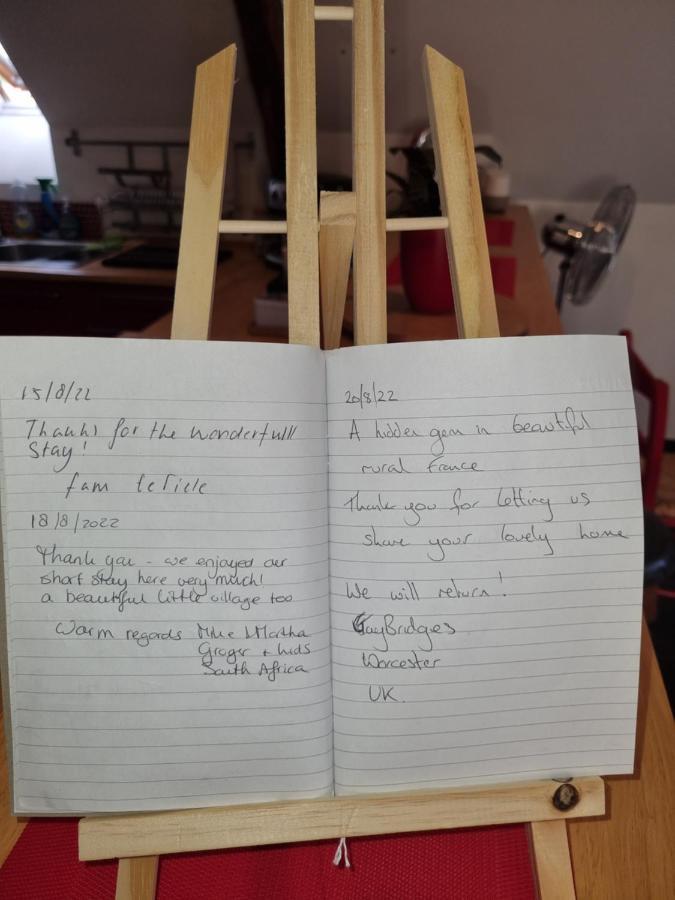 15/8/22
Thanks for the wonderfull
Stay!
fam te
18/8/2022
Thank you - we enjoyed our
short stay here very much!
a beautiful little village too
Warm regards Mike & Martha
Groger + kids
South Africa
20/8/22
A hidden gem in beautiful
rural France
Thank you for letting us
share your lovely home
We will return!
Gay Bridges
Worcester
UK.